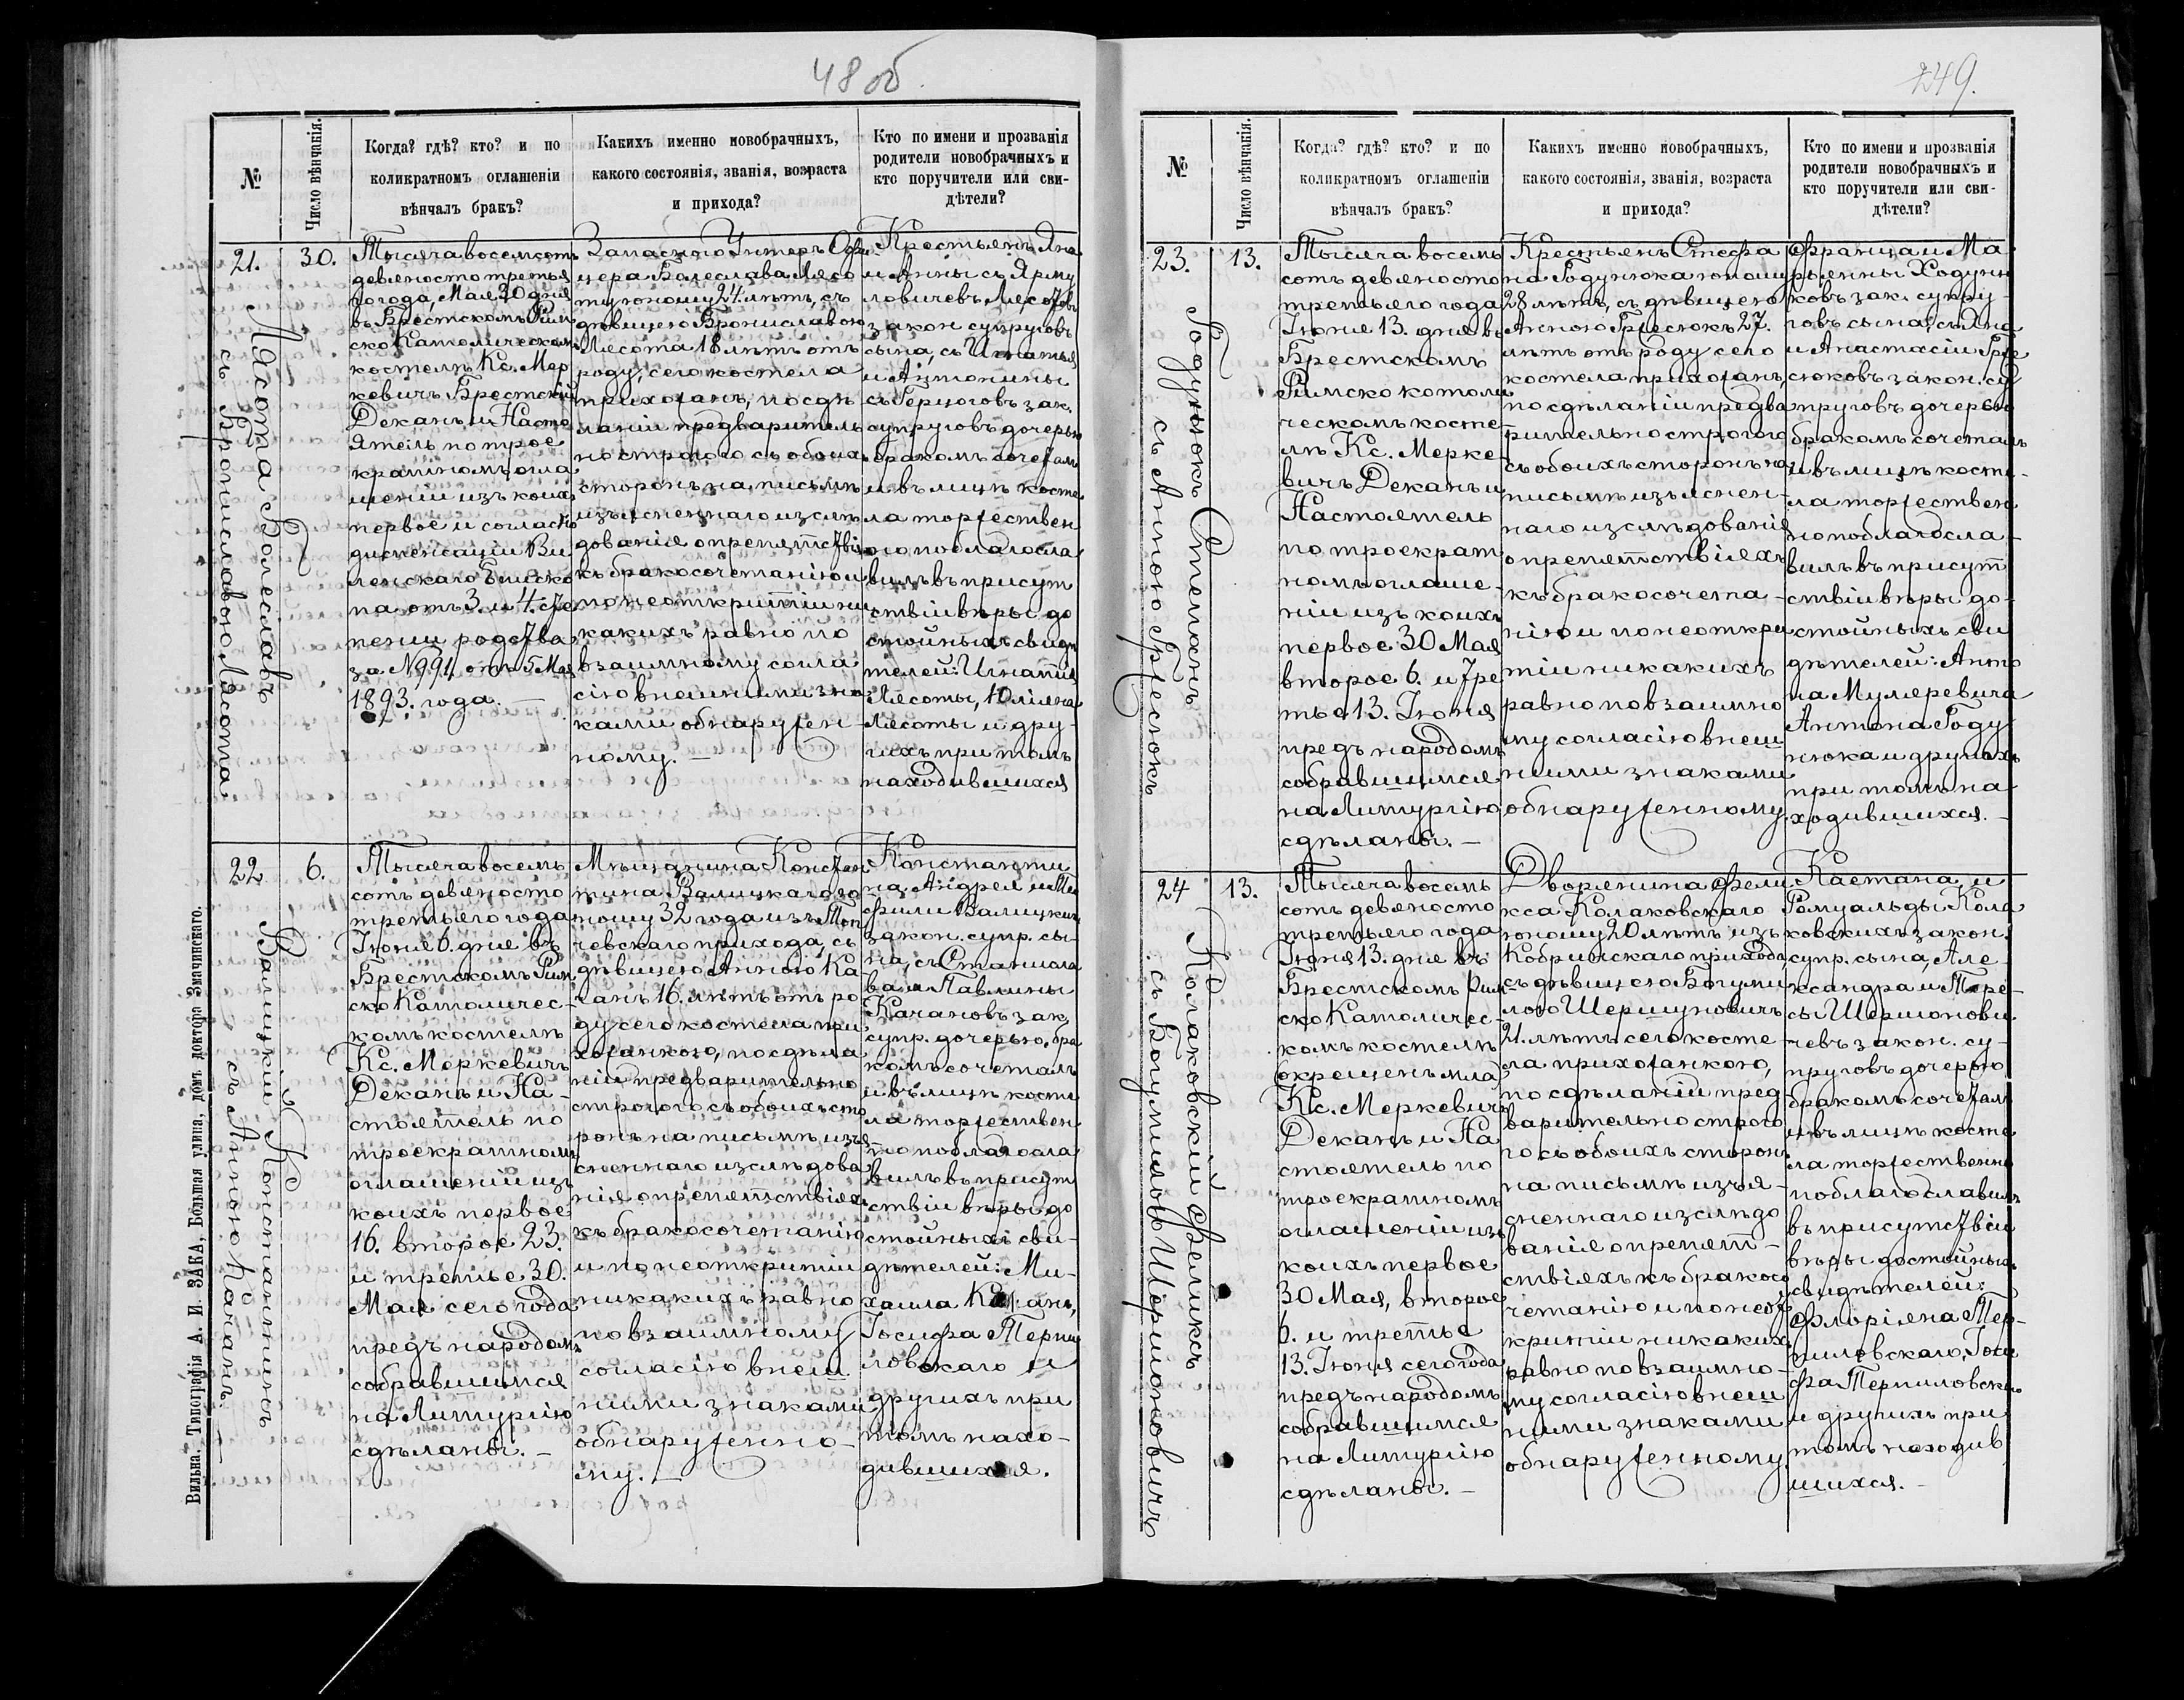 48 об.
№
Число вѣнчанія.
Когда? гдѣ? кто? и по
коликратномъ оглашеніи
вѣнчалъ бракъ?
Какихъ именно новобрачныхъ,
какого состоянія, званія, возраста
и прихода?
Кто по имени и прозванія
родители новобрачныхъ и
кто поручители или сви-
дѣтели?
21.
Лясота Болеславъ
съ Брониславою Лясота
30.
Тысяча восемсотъ
девяносто третья
го года, Мая 30 дня
въ Брестскомъ Рим
ско Католическомъ
костелѣ Кс. Мер
кевичъ Брестскій
Деканъ и Насто
ятель по трое
кратномъ огла
шеніи изъ коихъ
первое и согласно
диспенсаціи Ви
ленскаго Еписко
па отъ 3. и 4. сте
пени родства
за N 991 отъ 5 Мая
1893. года. —
Запаснаго Унтеръ Офи
цера Болеслава Лясо
ту, юношу 24 лѣтъ, съ
дѣвицею Брониславою
Лясота 18 лѣтъ отъ
роду, сего костела
прихожанъ, по сдѣ
ланіи предваритель
но строгаго съ обоихъ
сторонъ на письмѣ
изъясненнаго изслѣ
дованія о препятствіяхъ
къ бракосочетанію и
по неоткрытіи ни
какихъ равно по
взаимному согла
сію внешними зна
ками обнаружен-
ному. —
Крестьянъ Яна
и Анны съ Ярму
ловичевъ Лясотовъ
закон супруговъ
сына, съ Игнатія
и Антонины
съ Герцоговъ зак.
супруговъ дочерью
бракомъ сочеталъ
и въ лицѣ косте
ла торжествен
но поблагосла
вилъ въ присут
ствіи вѣры до
стойныхъ свидѣ
телей: Игнатія
Лясоты, Юліяна
Лясоты и дру-
гихъ при томъ
находившихся
22
Валицкій Константинъ
съ Анною Качанъ.
6.
Тысяча восемь
сотъ девяносто
третьяго года
Іюня 6. дня въ
Брестскомъ Рим
ско Католичес-
комъ костелѣ
Кс. Меркевичъ
Деканъ и На-
стоятель по
троекратномъ
оглашеніи изъ
коихъ первое
16. второе 23.
и третье 30.
Мая сего года
предъ народомъ
собравшимся
на Литургію
сдѣланы. —
Мѣщанина Констан
тина Валицкаго ю
ношу 32 года изъ
чевскаго прихода, съ
дѣвицею Анною Ка
чанъ 16. лѣтъ отъ ро
ду сего костела при
хожанкою, по сдѣла
ніи предварительно
строгаго съ обоихъ сто
ронъ на письмѣ изъя
сненнаго изслѣдова
нія о препятствіяхъ
къ бракосочетанію
и по неоткрытіи
никакихъ равно
по взаимному
согласію внеш
ними знаками
обнаруженно-
му. —
Константи
на Андрея и
фили Валицкихъ
закон. супр. сы-
на, съ Станисла
ва и Павлины
Качановъ зак.
супр. дочерью, бра
комъ сочеталъ
и въ лицѣ косте
ла торжествен
но поблагосла
вилъ въ присут
ствіи вѣры до
стойныхъ сви-
дѣтелей: Ми-
хаила Качанъ,
Іосифа Терпи
ловскаго и
другихъ при
томъ нахо-
дившихся.
Вильна Типографія А. И. ЗАКА, Большая улица, домъ доктора Змачинскаго.
249.
№
Число вѣнчанія.
Когда? гдѣ? кто? и по
коликратномъ оглашеніи
вѣнчалъ бракъ?
Какихъ именно новобрачныхъ,
какого состоянія, званія, возраста
и прихода?
Кто по имени и прозванія
родители новобрачныхъ и
кто поручители или сви-
дѣтели?
23.
Годунюкъ Стефанъ
съ Анною Гресюкъ
13.
Тысяча восемь
сотъ девяносто
третьяго года
Іюня 13. дня въ
Брестскомъ
Римско котоли
ческомъ косте-
лѣ Кс. Мерке-
вичъ Деканъ и
Настоятель
по троекрат
номъ оглаше-
ніи изъ коихъ
первое 30 Мая
второе 6. и тре
тье 13. Іюня
предъ народомъ
собравшимся
на Литургію
сдѣланы. —
Крестьянъ Стефа
на Годунюка юношу
28 лѣтъ, съ дѣвицею
Анною Гресюкъ 27.
лѣтъ отъ роду сего
костела прихожанъ,
по сдѣланіи предва
рительно строгаго
съ обоихъ сторонъ на
письмѣ изъяснен-
наго изслѣдованія
о препятствіяхъ
къ бракосочета-
нію и по неоткры
тіи никакихъ
равно по взаимно
му согласію внеш
ними знаками
обнаруженному.
Франца и Ма
рьянны Ходуню
ковъ зак. супру-
говъ сына, съ Яна
и Анастасіи Гре
сюковъ закон. су
пруговъ дочерью
бракомъ сочеталъ
и въ лицѣ косте-
ла торжествен
но поблагосла-
вилъ въ присут
ствіи вѣры до-
стойныхъ сви
дѣтелей: Анто
на Муляревича
Антона Году
нюка и другихъ
при томъ на-
ходившихся. —
24
Колаковскій Феликсъ
съ Богумилою Шершоновичъ
13.
Тысяча восемь
сотъ девяносто
третьяго года
Іюня 13. дня въ
Брестскомъ Рим
ско Католичес-
комъ костелѣ
Кс. Меркевичъ
Деканъ и На
стоятель по
троекратномъ
оглашеніи изъ
коихъ первое
30 Мая, второе
6. и третье
13. Іюня сего года
предъ народомъ
собравшимся
на Литургію
сдѣланы. —
Дворянина Фели
кса Колаковскаго
юношу 20 лѣтъ изъ
Кобринскаго прихода,
съ дѣвицею Богуми
лою Шершуновичъ
21. лѣтъ сего косте
ла прихожанкою,
по сдѣланіи пред
варительно строга
го съ обоихъ сторонъ
на письмѣ изъя-
сненнаго изслѣдо
ванія о препят-
ствіяхъ къ бракосо
четанію и по неот
крытіи никакихъ
равно по взаимно-
му согласію внеш
ними знаками
обнаруженному.
Каетана и
Ромуальды Кола
ковскихъ закон.
супр. сына, Але-
ксандра и Тере-
сы Шершонови
чевъ закон. су-
пруговъ дочерью
бракомъ сочеталъ
и въ лицѣ косте
ла торжественно
поблагославилъ
въ присутствіи
вѣры достойныхъ
свидѣтелей:
Флоріяна Тер-
пиловскаго, Іоси
фа Терпиловскаго
и другихъ при
томъ находив
шихся. —